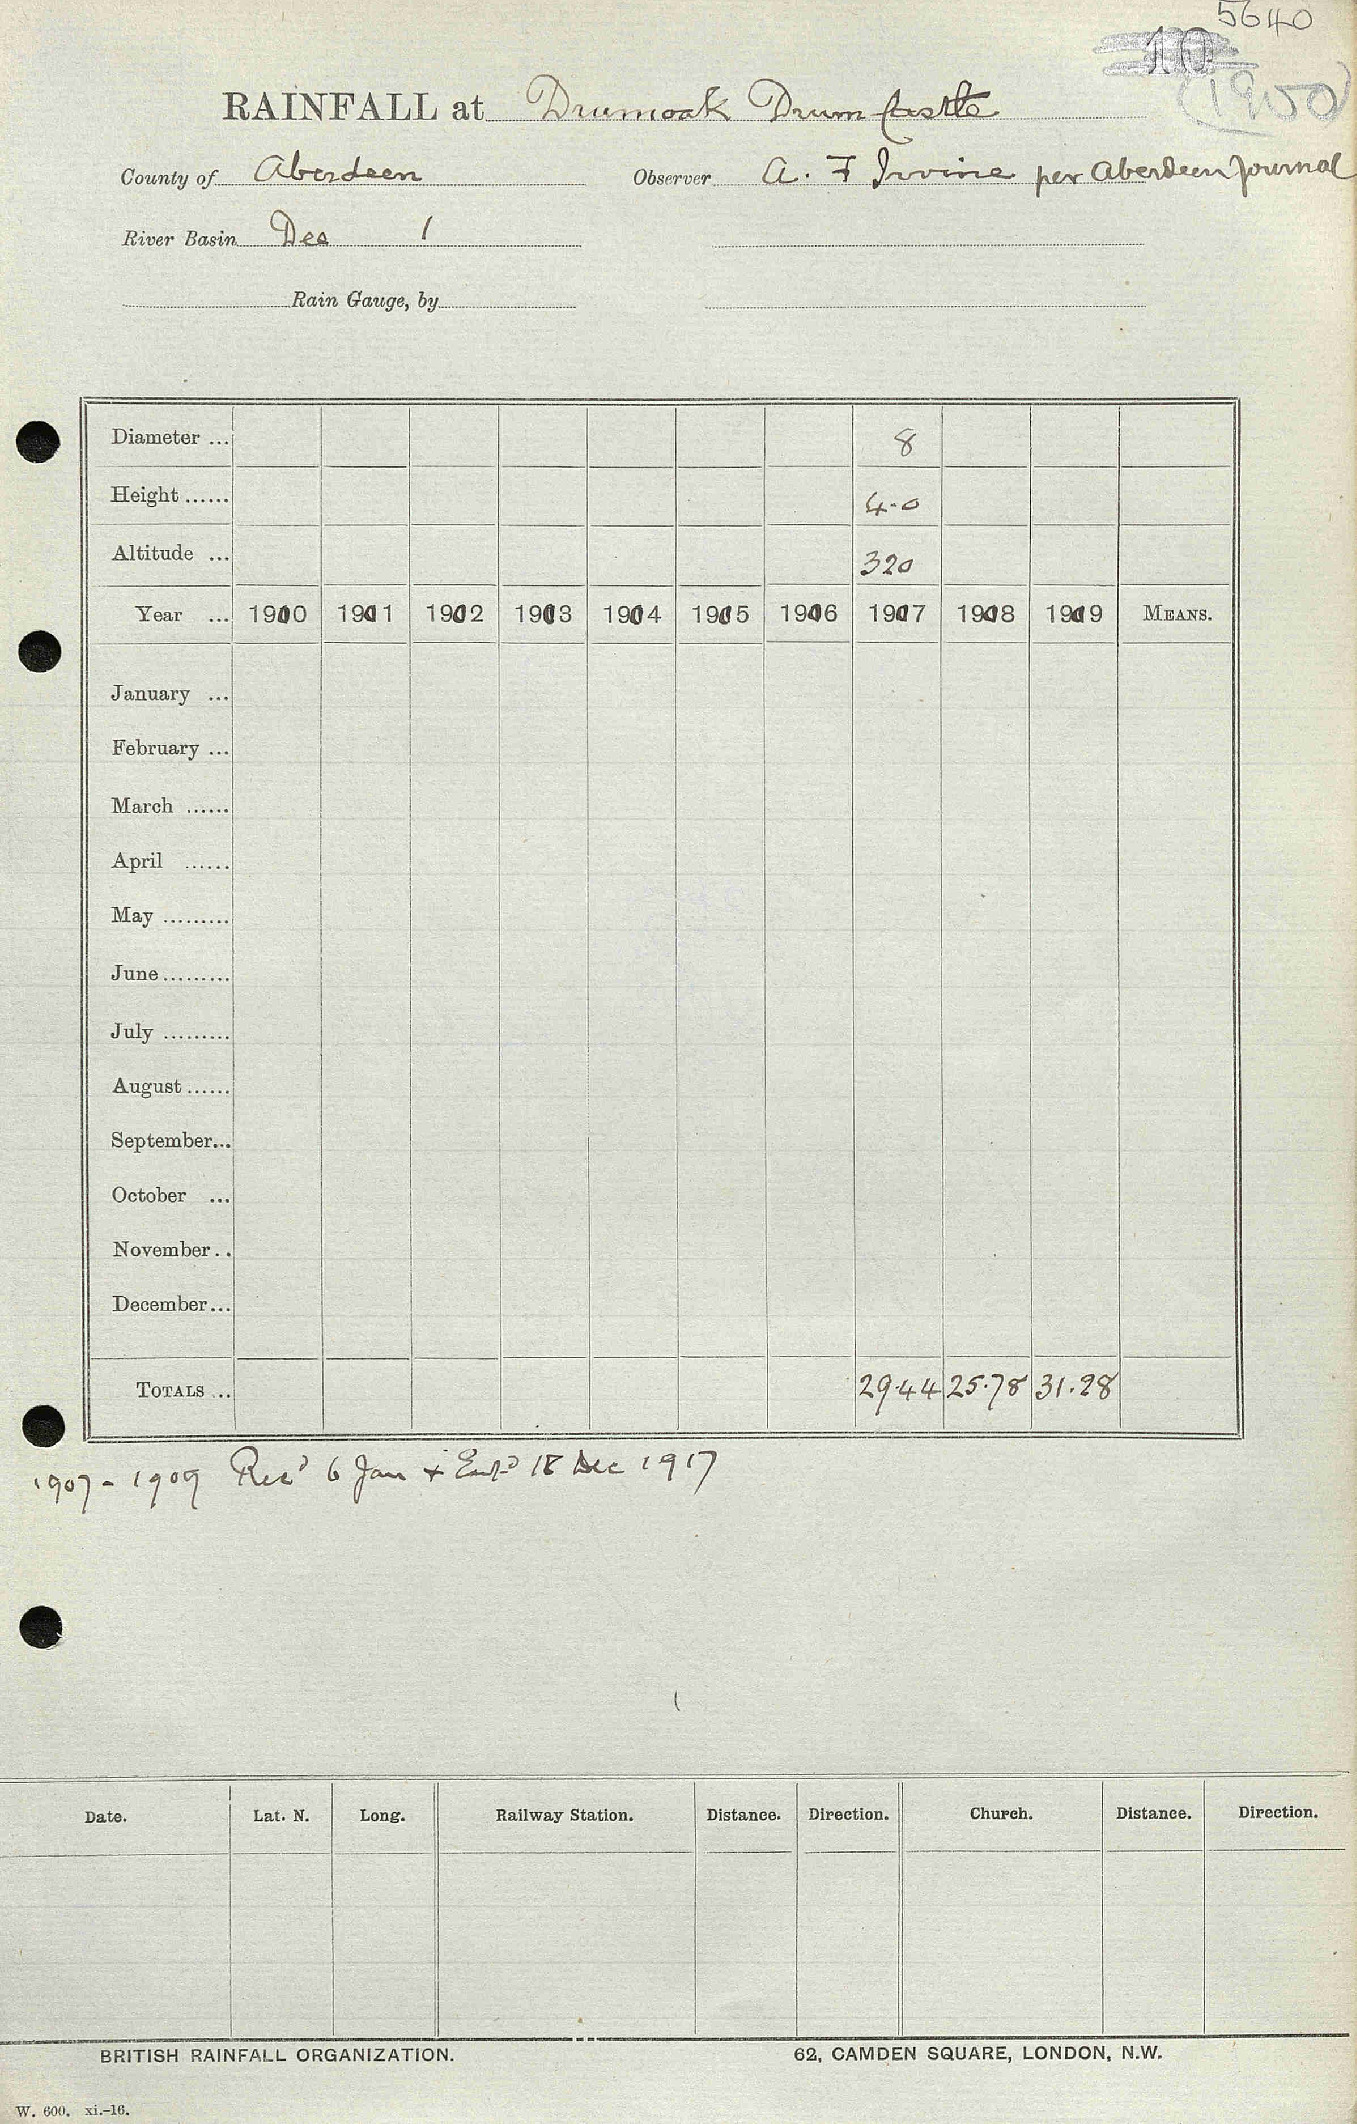 5640
10
(1900)
RAINFALL at Drumoak Drum Castle
County of Aberdeen Observer A. F Irvine per Aberdeen Journal
River Basin Dee 1
Rain Gauge, by
Diameter ... 8
Height ...... 4-0
Altitude ... 320
Year ... 1900 1901 1902 1903 1904 1905 1906 1907 1908 1909 MEANS.
January ...
February ...
March ......
April ......
May .........
June .........
July .........
August ......
September...
October ...
November..
December...
TOTALS ... 29.44 25.78 31.28
1907 - 1909 Recd 6 Jan + Entd 18 Dec 1917
Date. Lat. N. Long. Railway Station. Distance. Direction. Church. Distance. Direction.
BRITISH RAINFALL ORGANIZATION. 62, CAMDEN SQUARE, LONDON, N.W.
W. 600. xi.-16.